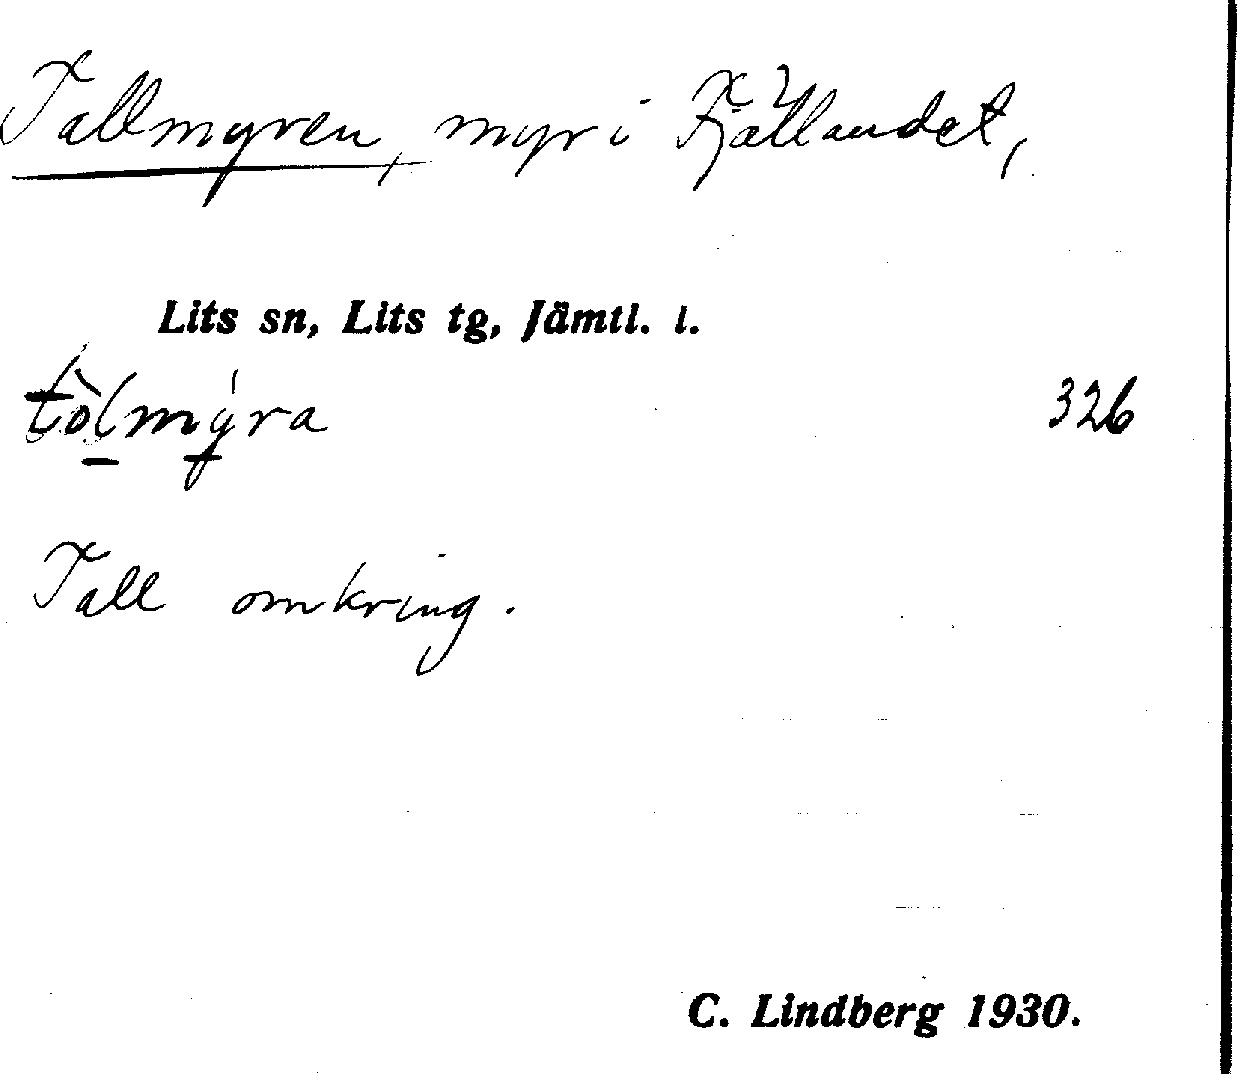 Tallmyren, myr i Fjällandet,
Lits sn, Lits tg, Jämtl. l.
tòlmýra 326
Tall omkring.
C. Lindberg 1930.